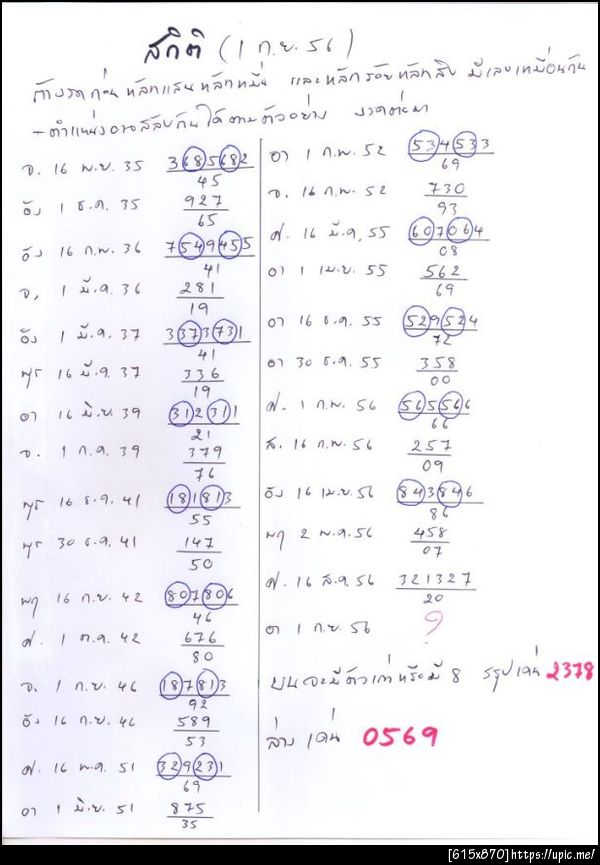 สถิติ (1 ก.ย. 56)
ถ้างวดก่อน หลักแสน หลักหมื่น และ หลักร้อย หลักสิบ มีเลขเหมือนกัน
- ตำแหน่งอาจสลับกันได้ ตามตัวอย่าง งวดต่อมา
จ. 16 พ.ย. 35 3685682
45
อัง 1 ธ.ค. 35 927
65
อัง 16 ก.พ. 36 7549455
41
จ. 1 มี.ค. 36 281
19
อัง 1 มี.ค. 37 3373731
41
พุธ 16 มี.ค. 37 336
19
อา 16 มิ.ย. 39 312311
21
จ. 1 ก.ค. 39 379
76
พุธ 16 ธ.ค. 41 181813
55
พุธ 30 ธ.ค. 41 147
50
พฤ 16 ก.ย. 42 807806
46
ศ. 1 ต.ค. 42 676
80
จ. 1 ก.ย. 46 187813
92
อัง 16 ก.ย. 46 589
53
ศ. 16 พ.ค. 51 329231
69
อา 1 มิ.ย. 51 875
35
อา 1 ก.พ. 52 534533
69
จ. 16 ก.พ. 52 730
93
ศ. 16 มี.ค. 55 607064
08
อา 1 เม.ย. 55 562
69
อา 16 ธ.ค. 55 529524
72
อา 30 ธ.ค. 55 358
00
ศ. 1 ก.พ. 56 565566
66
ส. 16 ก.พ. 56 257
09
อัง 16 เม.ย. 56 843846
86
พฤ 2 พ.ค. 56 458
07
ศ. 16 ส.ค. 56 321327
20
อา 1 ก.ย. 56 ?
บน จะมีตัวเก่าหรือมี 8 สรุปเด่น 2378
ล่าง เด่น 0569
[615x870]https://upic.me/